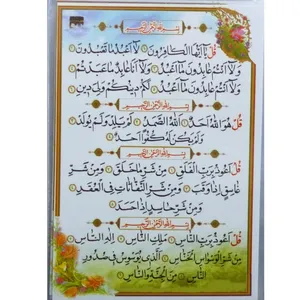 بِسْمِ اللهِ الرَّحْمٰنِ الرَّحِيْمِ
قُلْ يَا أَيُّهَا الْكَافِرُونَ ۝ لَا أَعْبُدُ مَا تَعْبُدُونَ ۝
وَلَا أَنْتُمْ عَابِدُونَ مَا أَعْبُدُ ۝ وَلَا أَنَا عَابِدٌ مَا عَبَدْتُمْ ۝
وَلَا أَنْتُمْ عَابِدُونَ مَا أَعْبُدُ ۝ لَكُمْ دِينُكُمْ وَلِيَ دِينِ ۝
بِسْمِ اللهِ الرَّحْمٰنِ الرَّحِيْمِ
قُلْ هُوَ اللهُ أَحَدٌ ۝ اللهُ الصَّمَدُ ۝ لَمْ يَلِدْ وَلَمْ يُولَدْ ۝
وَلَمْ يَكُنْ لَهُ كُفُوًا أَحَدٌ ۝
بِسْمِ اللهِ الرَّحْمٰنِ الرَّحِيْمِ
قُلْ أَعُوذُ بِرَبِّ الْفَلَقِ ۝ مِنْ شَرِّ مَا خَلَقَ ۝ وَمِنْ شَرِّ
غَاسِقٍ إِذَا وَقَبَ ۝ وَمِنْ شَرِّ النَّفَّاثَاتِ فِي الْعُقَدِ ۝
وَمِنْ شَرِّ حَاسِدٍ إِذَا حَسَدَ ۝
بِسْمِ اللهِ الرَّحْمٰنِ الرَّحِيْمِ
قُلْ أَعُوذُ بِرَبِّ النَّاسِ ۝ مَلِكِ النَّاسِ ۝ إِلٰهِ النَّاسِ ۝
مِنْ شَرِّ الْوَسْوَاسِ الْخَنَّاسِ ۝ الَّذِي يُوَسْوِسُ فِي صُدُورِ
النَّاسِ ۝ مِنَ الْجِنَّةِ وَالنَّاسِ ۝